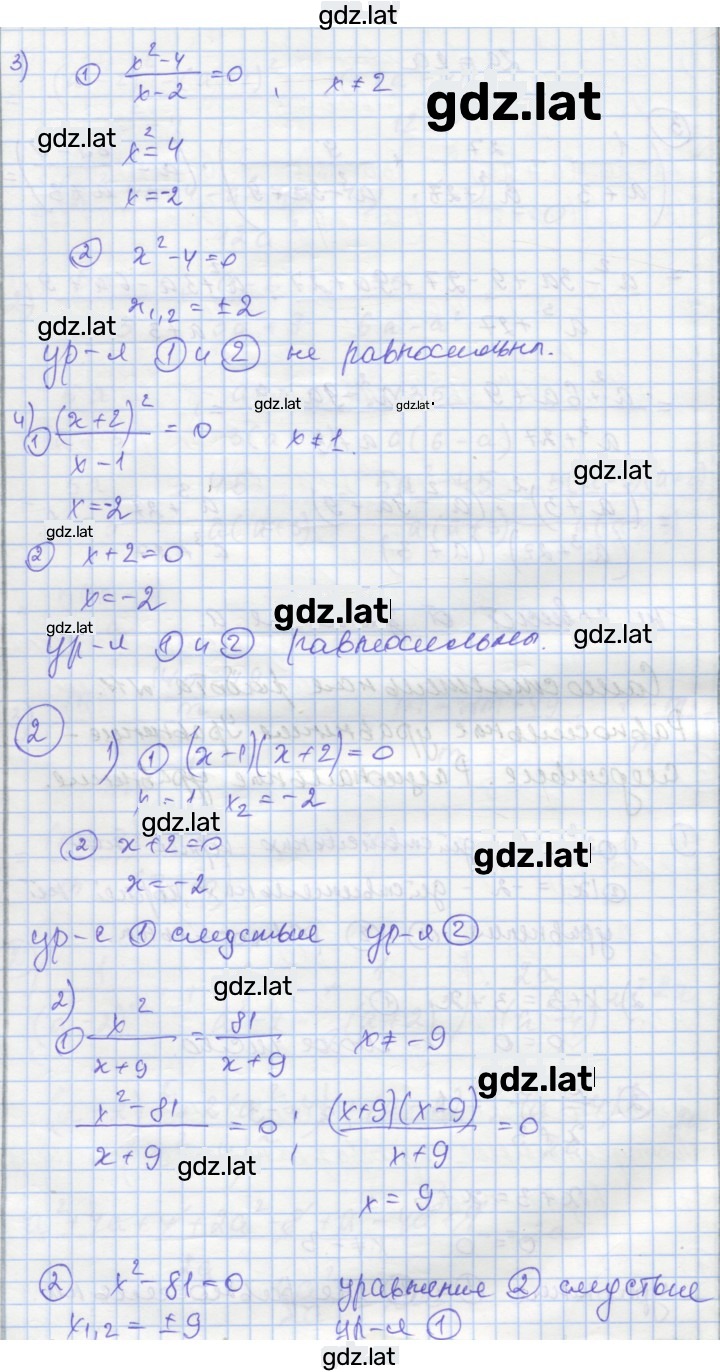 gdz.lat
3) ① (x²-4)/(x-2) = 0, x ≠ 2
gdz.lat
gdz.lat
x² = 4
x = -2
② x²-4=0
x₁,₂ = ±2
gdz.lat
ур-я ① и ② не равносильны.
gdz.lat
gdz.lat
4) ① (x+2)²/(x-1) = 0 x ≠ 1.
gdz.lat
x = -2
gdz.lat
② x+2=0
x = -2
gdz.lat
gdz.lat
gdz.lat
ур-я ① и ② равносильны.
② 1) ① (x-1)(x+2)=0
x₂ = -2
gdz.lat
② x+2=0
gdz.lat
x = -2
ур-е ① следствие ур-я ②
gdz.lat
2) ① x²/(x+9) = 81/(x+9) x ≠ -9
gdz.lat
(x²-81)/(x+9) = 0; (x+9)(x-9)/(x+9) = 0
gdz.lat
x = 9
② x²-81=0 уравнение ② следствие
x₁,₂ = ±9 ур-я ①
gdz.lat